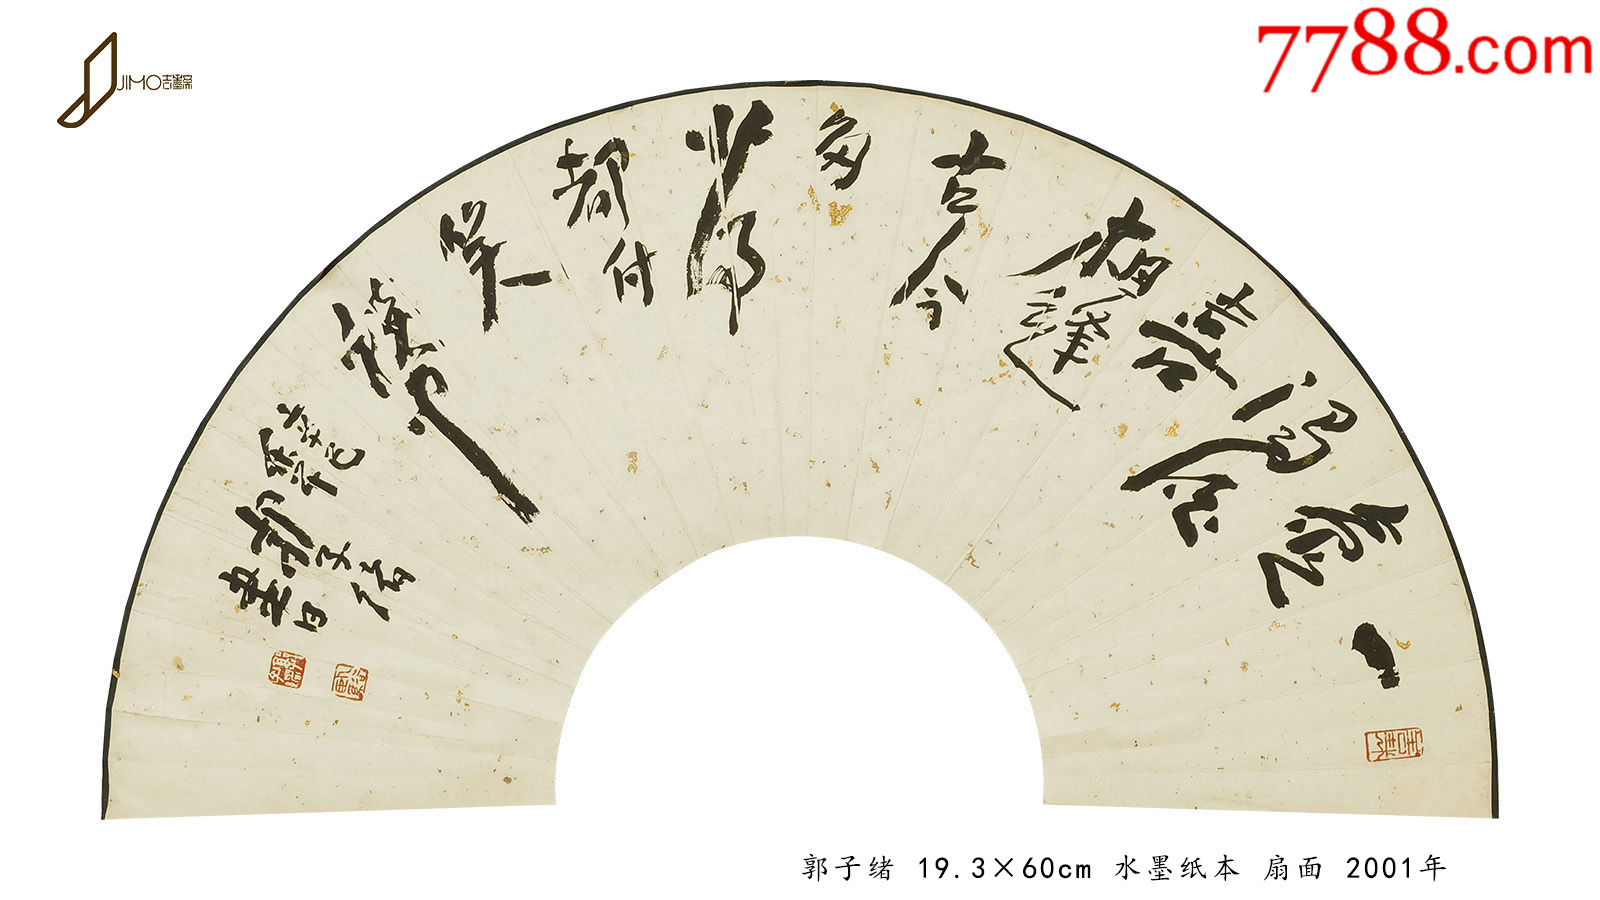 JIMO吉墨斋
7788.com
一壶
浊酒
喜
相逢
古今
多
少事
都付
笑
谈中
辛巳
郭子绪
书
郭子绪 19.3×60cm 水墨纸本 扇面 2001年